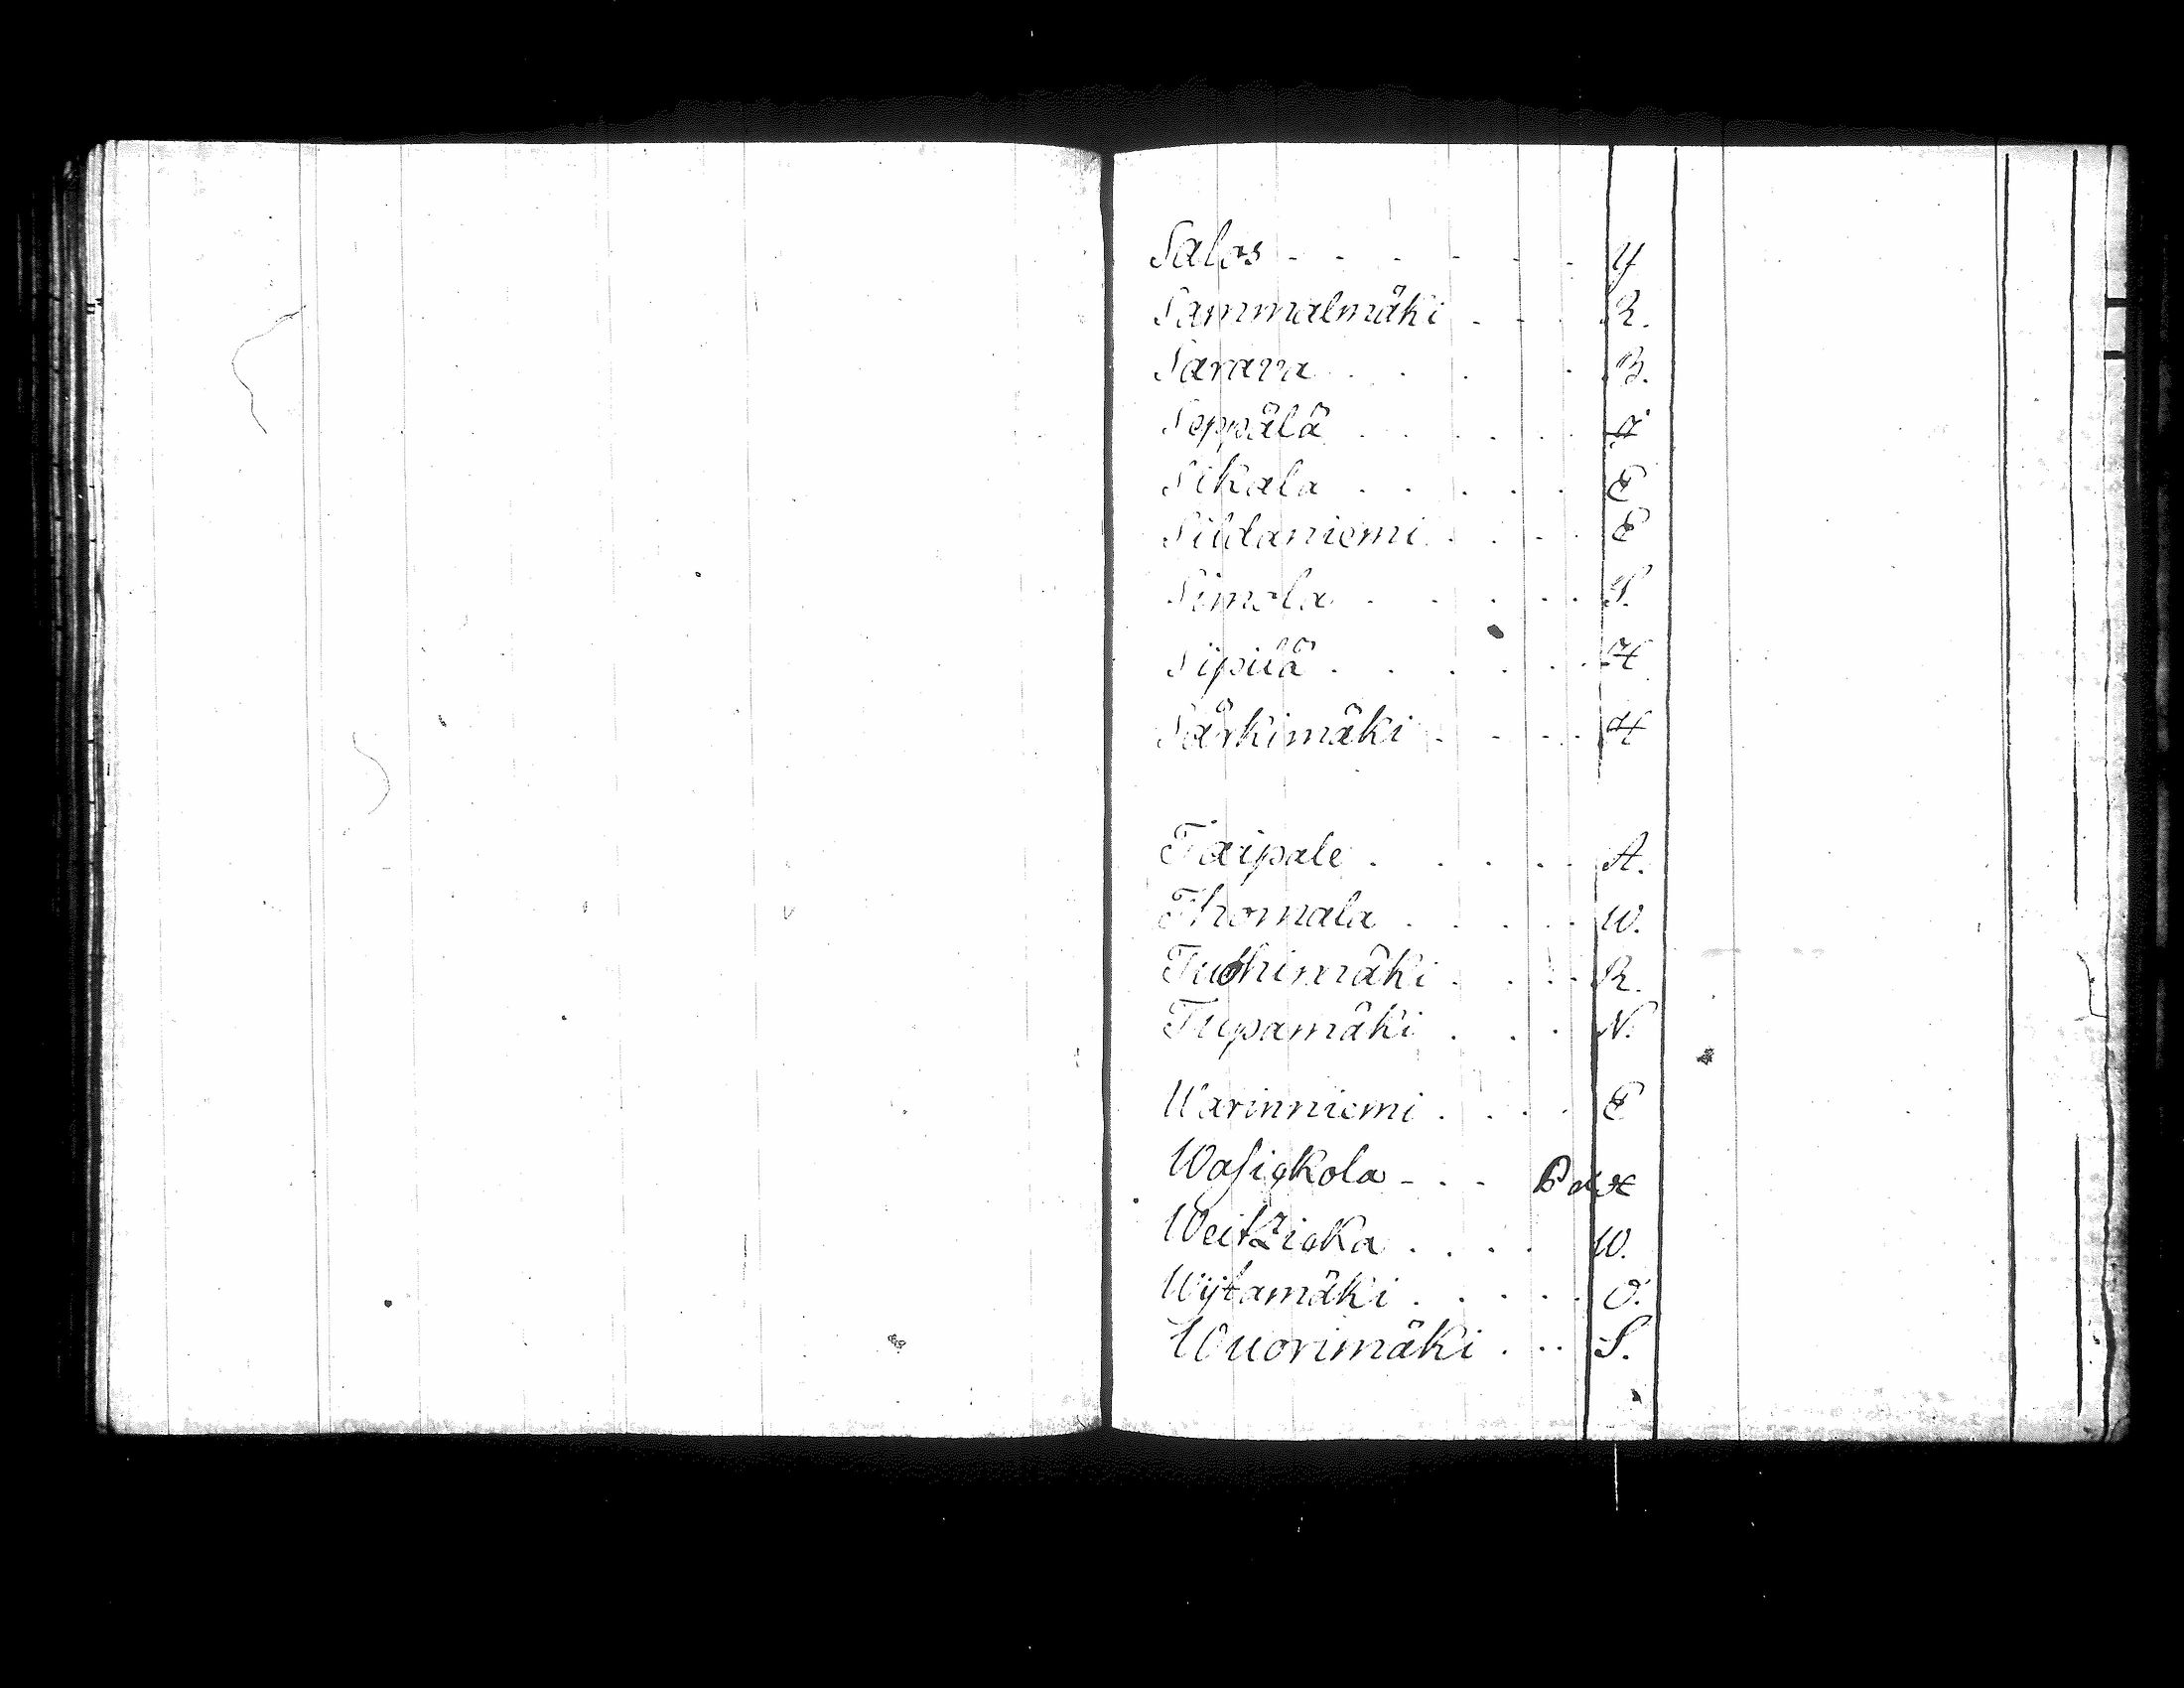 Salos - - - - - - Y
Sammalmäki . . . R.
Sarava . . . . B.
Seppälä . . . . .
Sikala . . . . . E
Sildaniemi . . . . E
Simola . . . . . S.
Sipilä . . . . . H
Särkimäki . . . . H
Taipale . . . . . A.
Thomala . . . . . W.
Tuohimäki . . . . R.
Tupamäki . . . N.
Warinniemi . . . . E
Wasickola - . . -
Weitzicka . . . . W.
Wijtamäki . . . . . O.
Wuorimäki . . . S.